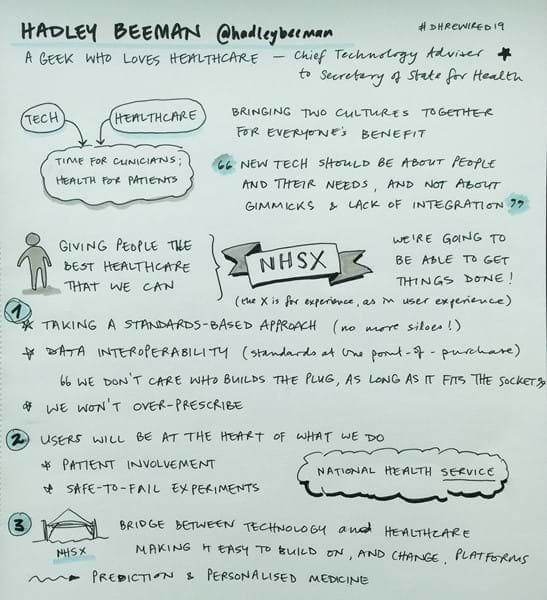 HADLEY BEEMAN @hadleybeeman
#DHREWIRED19
A GEEK WHO LOVES HEALTHCARE — Chief Technology Adviser
to Secretary of State for Health
TECH
HEALTHCARE
TIME FOR CLINICIANS;
HEALTH FOR PATIENTS
BRINGING TWO CULTURES TOGETHER
FOR EVERYONE'S BENEFIT
“ NEW TECH SHOULD BE ABOUT PEOPLE
AND THEIR NEEDS, AND NOT ABOUT
GIMMICKS & LACK OF INTEGRATION ”
GIVING PEOPLE THE
BEST HEALTHCARE
THAT WE CAN
NHSX
WE'RE GOING TO
BE ABLE TO GET
THINGS DONE!
(the X is for experience, as in user experience)
1
TAKING A STANDARDS-BASED APPROACH (no more siloes!)
DATA INTEROPERABILITY (standards at the point-of-purchase)
“ WE DON'T CARE WHO BUILDS THE PLUG, AS LONG AS IT FITS THE SOCKET ”
WE WON'T OVER-PRESCRIBE
2 USERS WILL BE AT THE HEART OF WHAT WE DO
PATIENT INVOLVEMENT
SAFE-TO-FAIL EXPERIMENTS
NATIONAL HEALTH SERVICE
3
NHSX
BRIDGE BETWEEN TECHNOLOGY and HEALTHCARE
MAKING it EASY TO BUILD ON, AND CHANGE, PLATFORMS
PREDICTION & PERSONALISED MEDICINE